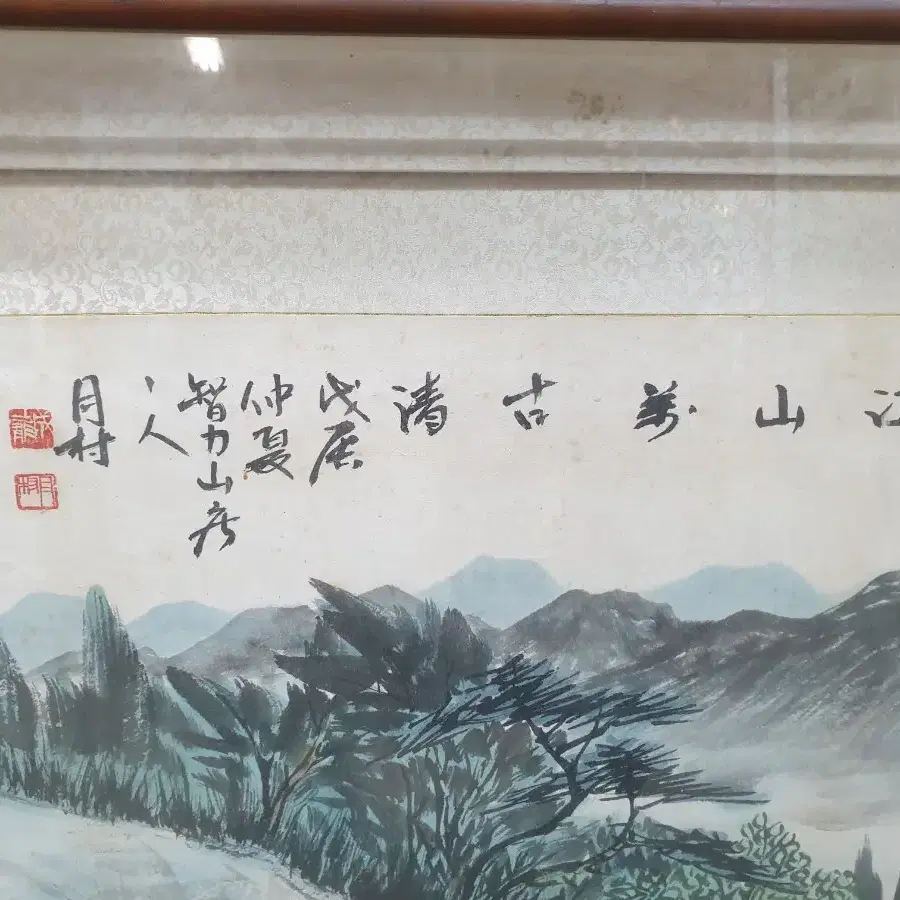 江山萬古清
戊辰
仲夏
智力山房
丶人
月村
月村